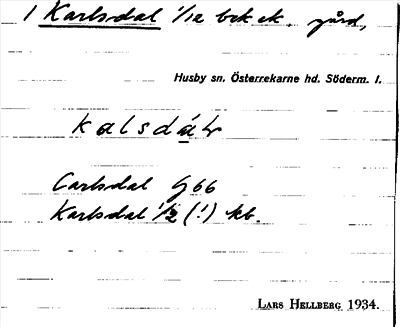 1 Karlsdal 1/12 bebek. gård,
Husby sn. Österrekarne hd. Söderm. l.
kalsdàl
Carlsdal G 66
Karlsdal 1/2 (!) kb.
LARS HELLBERG 1934.